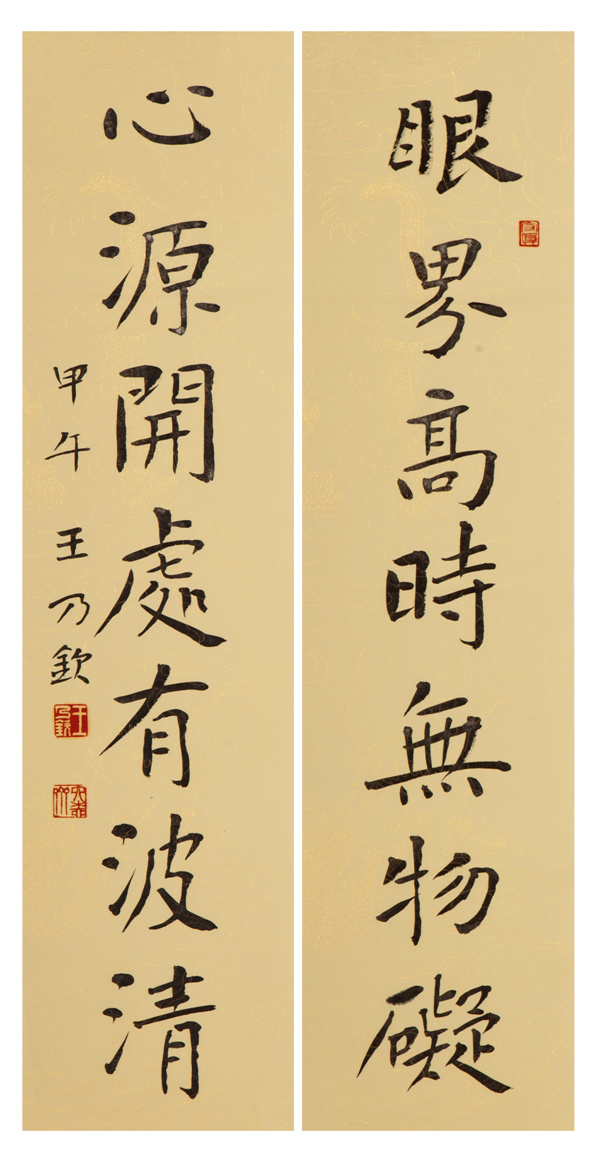 眼界高時無物礙
心源開處有波清
甲午 王乃欽